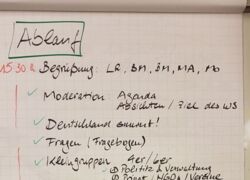 Ablauf
15:30
Begrüßung: LR, BM, BM, MA,
Moderation: Agenda
Absichten / Ziel des WS
Deutschland summt!
Fragen (Fragebogen)
Kleingruppen 4er/6er
① Politik & Verwaltung
② NGOs / Vereine